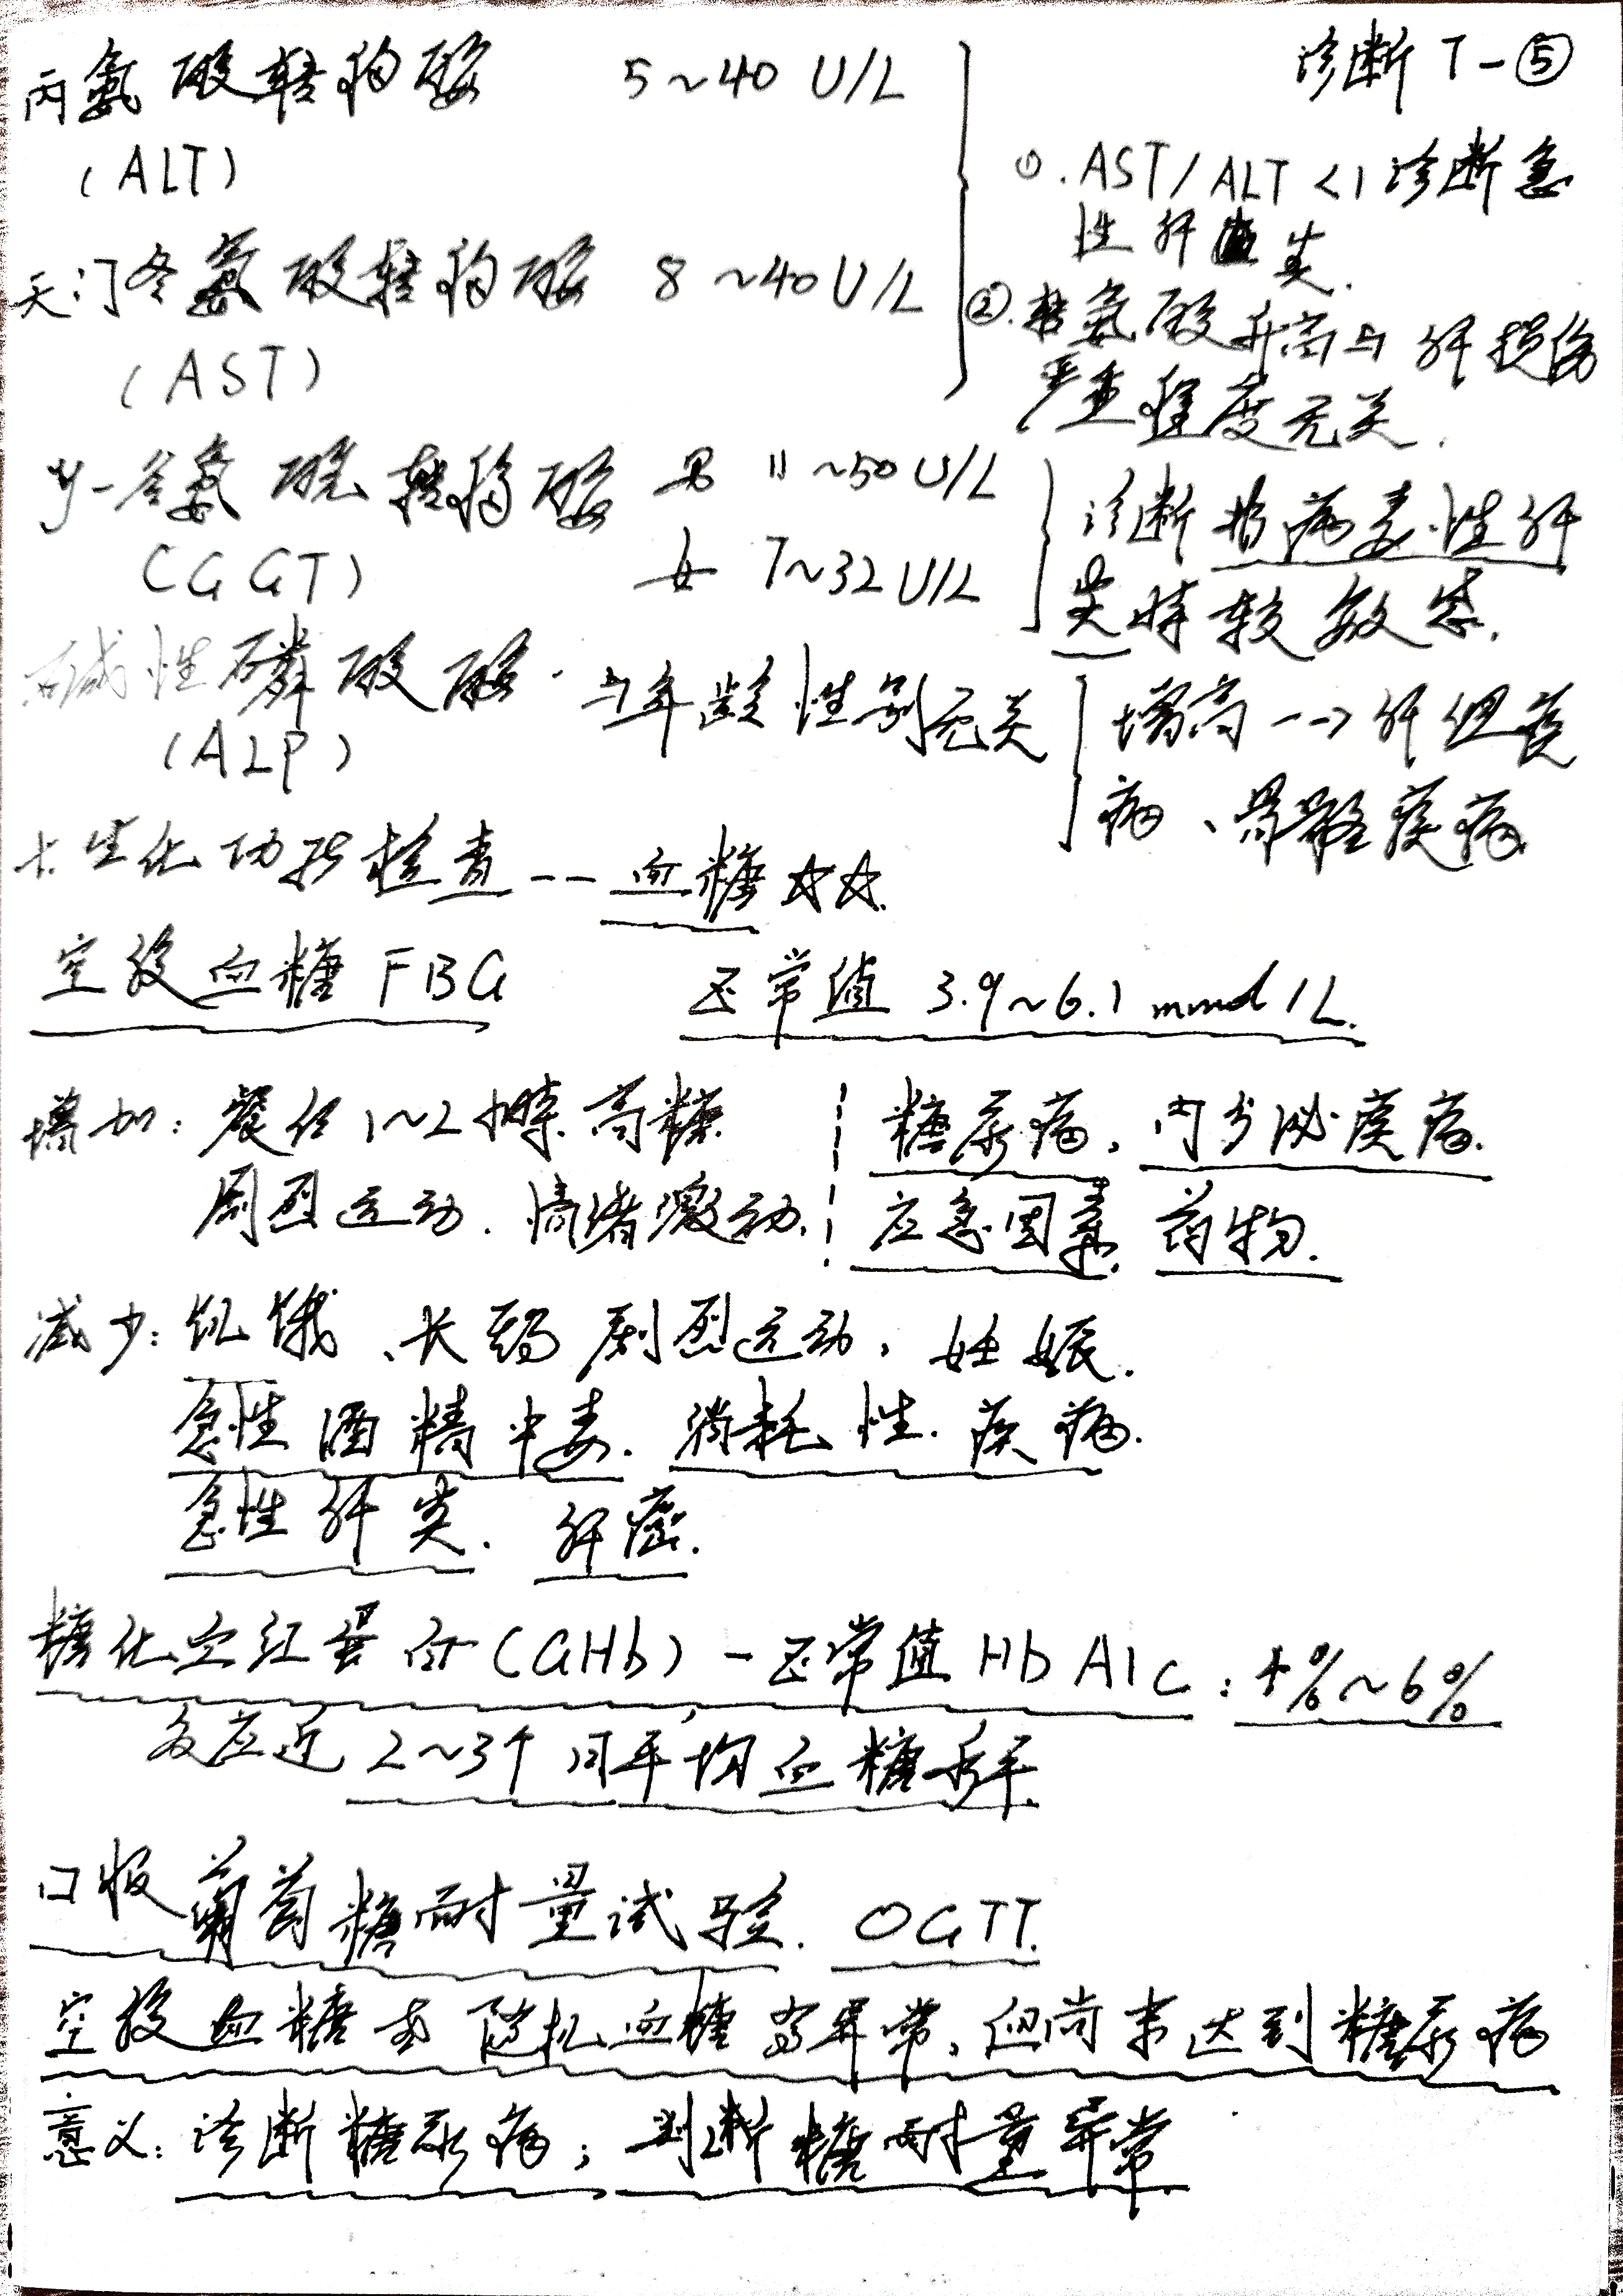 诊断 T-⑤
丙氨酸转移酶 5~40 U/L
(ALT)
天门冬氨酸转移酶 8~40 U/L
(AST)
①.AST/ALT<1 诊断急
性肝炎.
②.转氨酸升高与肝损伤
严重程度无关.
γ-谷氨酰转移酶 男 11~50 U/L
(GGT) 女 7~32 U/L
诊断为病毒性肝
炎时较敏感.
碱性磷酸酶·与年龄性别无关
(ALP)
增高--->肝胆疾
病、骨骼疾病
十.生化功能检查--血糖☆☆.
空腹血糖 FBG 正常值 3.9~6.1 mmol/L.
增加: 餐后1~2小时.高糖. 糖尿病、内分泌疾病.
剧烈运动.情绪激动. 应急因素.药物.
减少: 饥饿、长期剧烈运动、妊娠.
急性酒精中毒.消耗性.疾病.
急性肝炎.肝癌.
糖化空红蛋白(GHb)-正常值HbA1c:4%~6%
反应近2~3个月平均血糖水平.
口服葡萄糖耐量试验.OGTT.
空腹血糖或随机血糖高异常,但尚未达到糖尿病
意义:诊断糖尿病;判断糖耐量异常